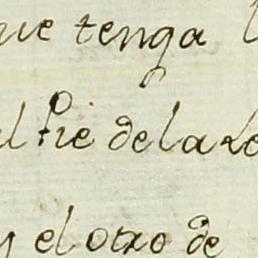 que tenga l
al Pie de la Le
y el otro de